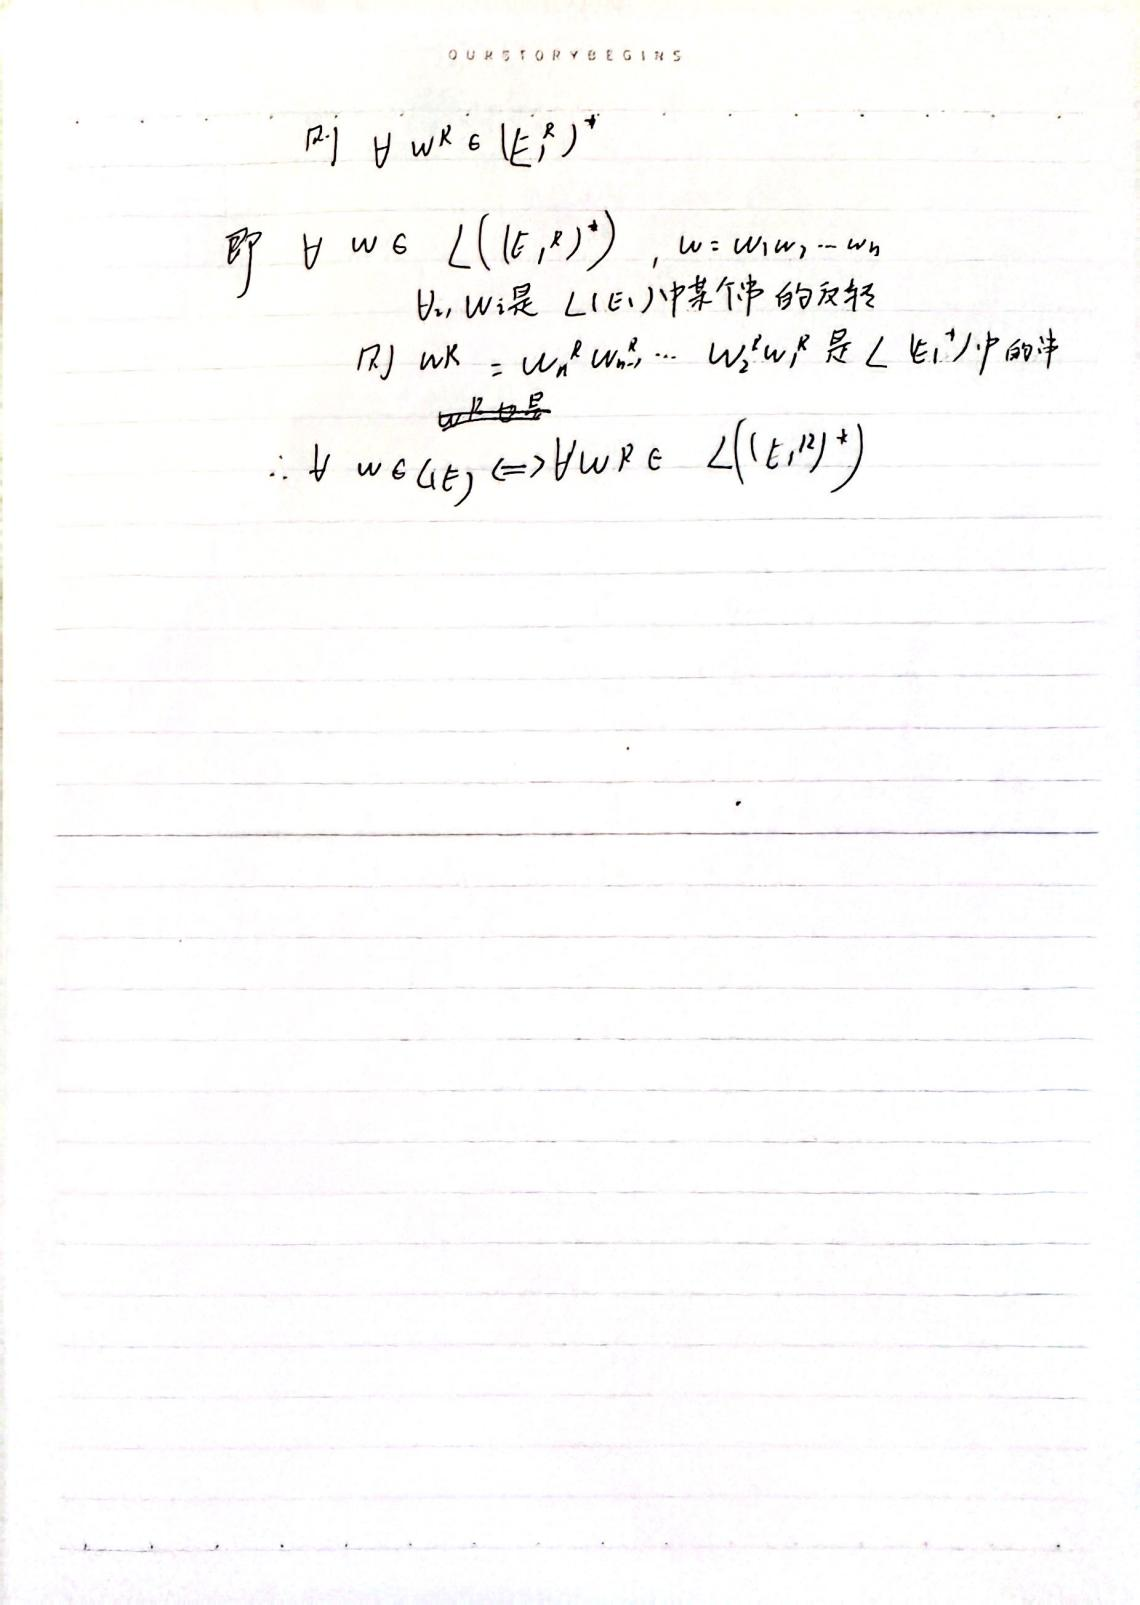 OURSTORYBEGINS
则 ∀ w^R ∈ (E₁^R)^*
即 ∀ w ∈ L((E₁^R)^*), w = w₁w₂…wₙ
∀i, wᵢ是 L(E₁)中某个串的反转
则 w^R = wₙ^R wₙ₋₁^R … w₂^R w₁^R 是 L(E₁^*)中的串
∴ ∀ w ∈ L(E) <=> ∀ w^R ∈ L((E₁^R)^*)